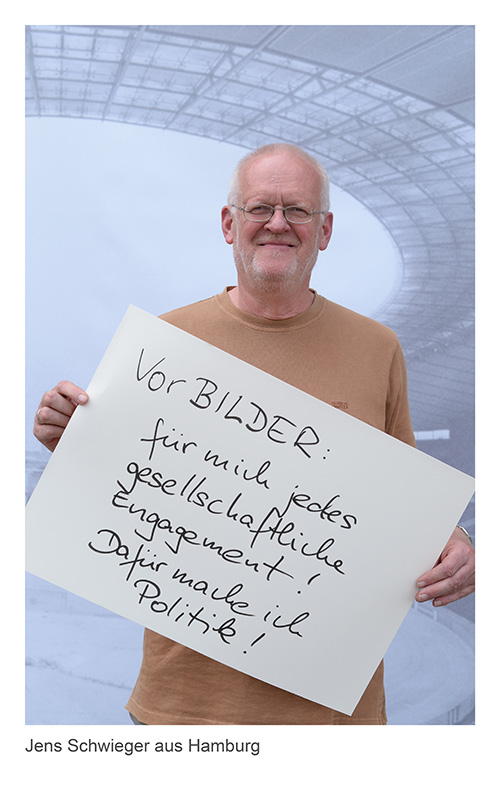 Vor BILDER:
für mich jedes
gesellschaftliche
Engagement!
Dafür mache ich
Politik!
Jens Schwieger aus Hamburg